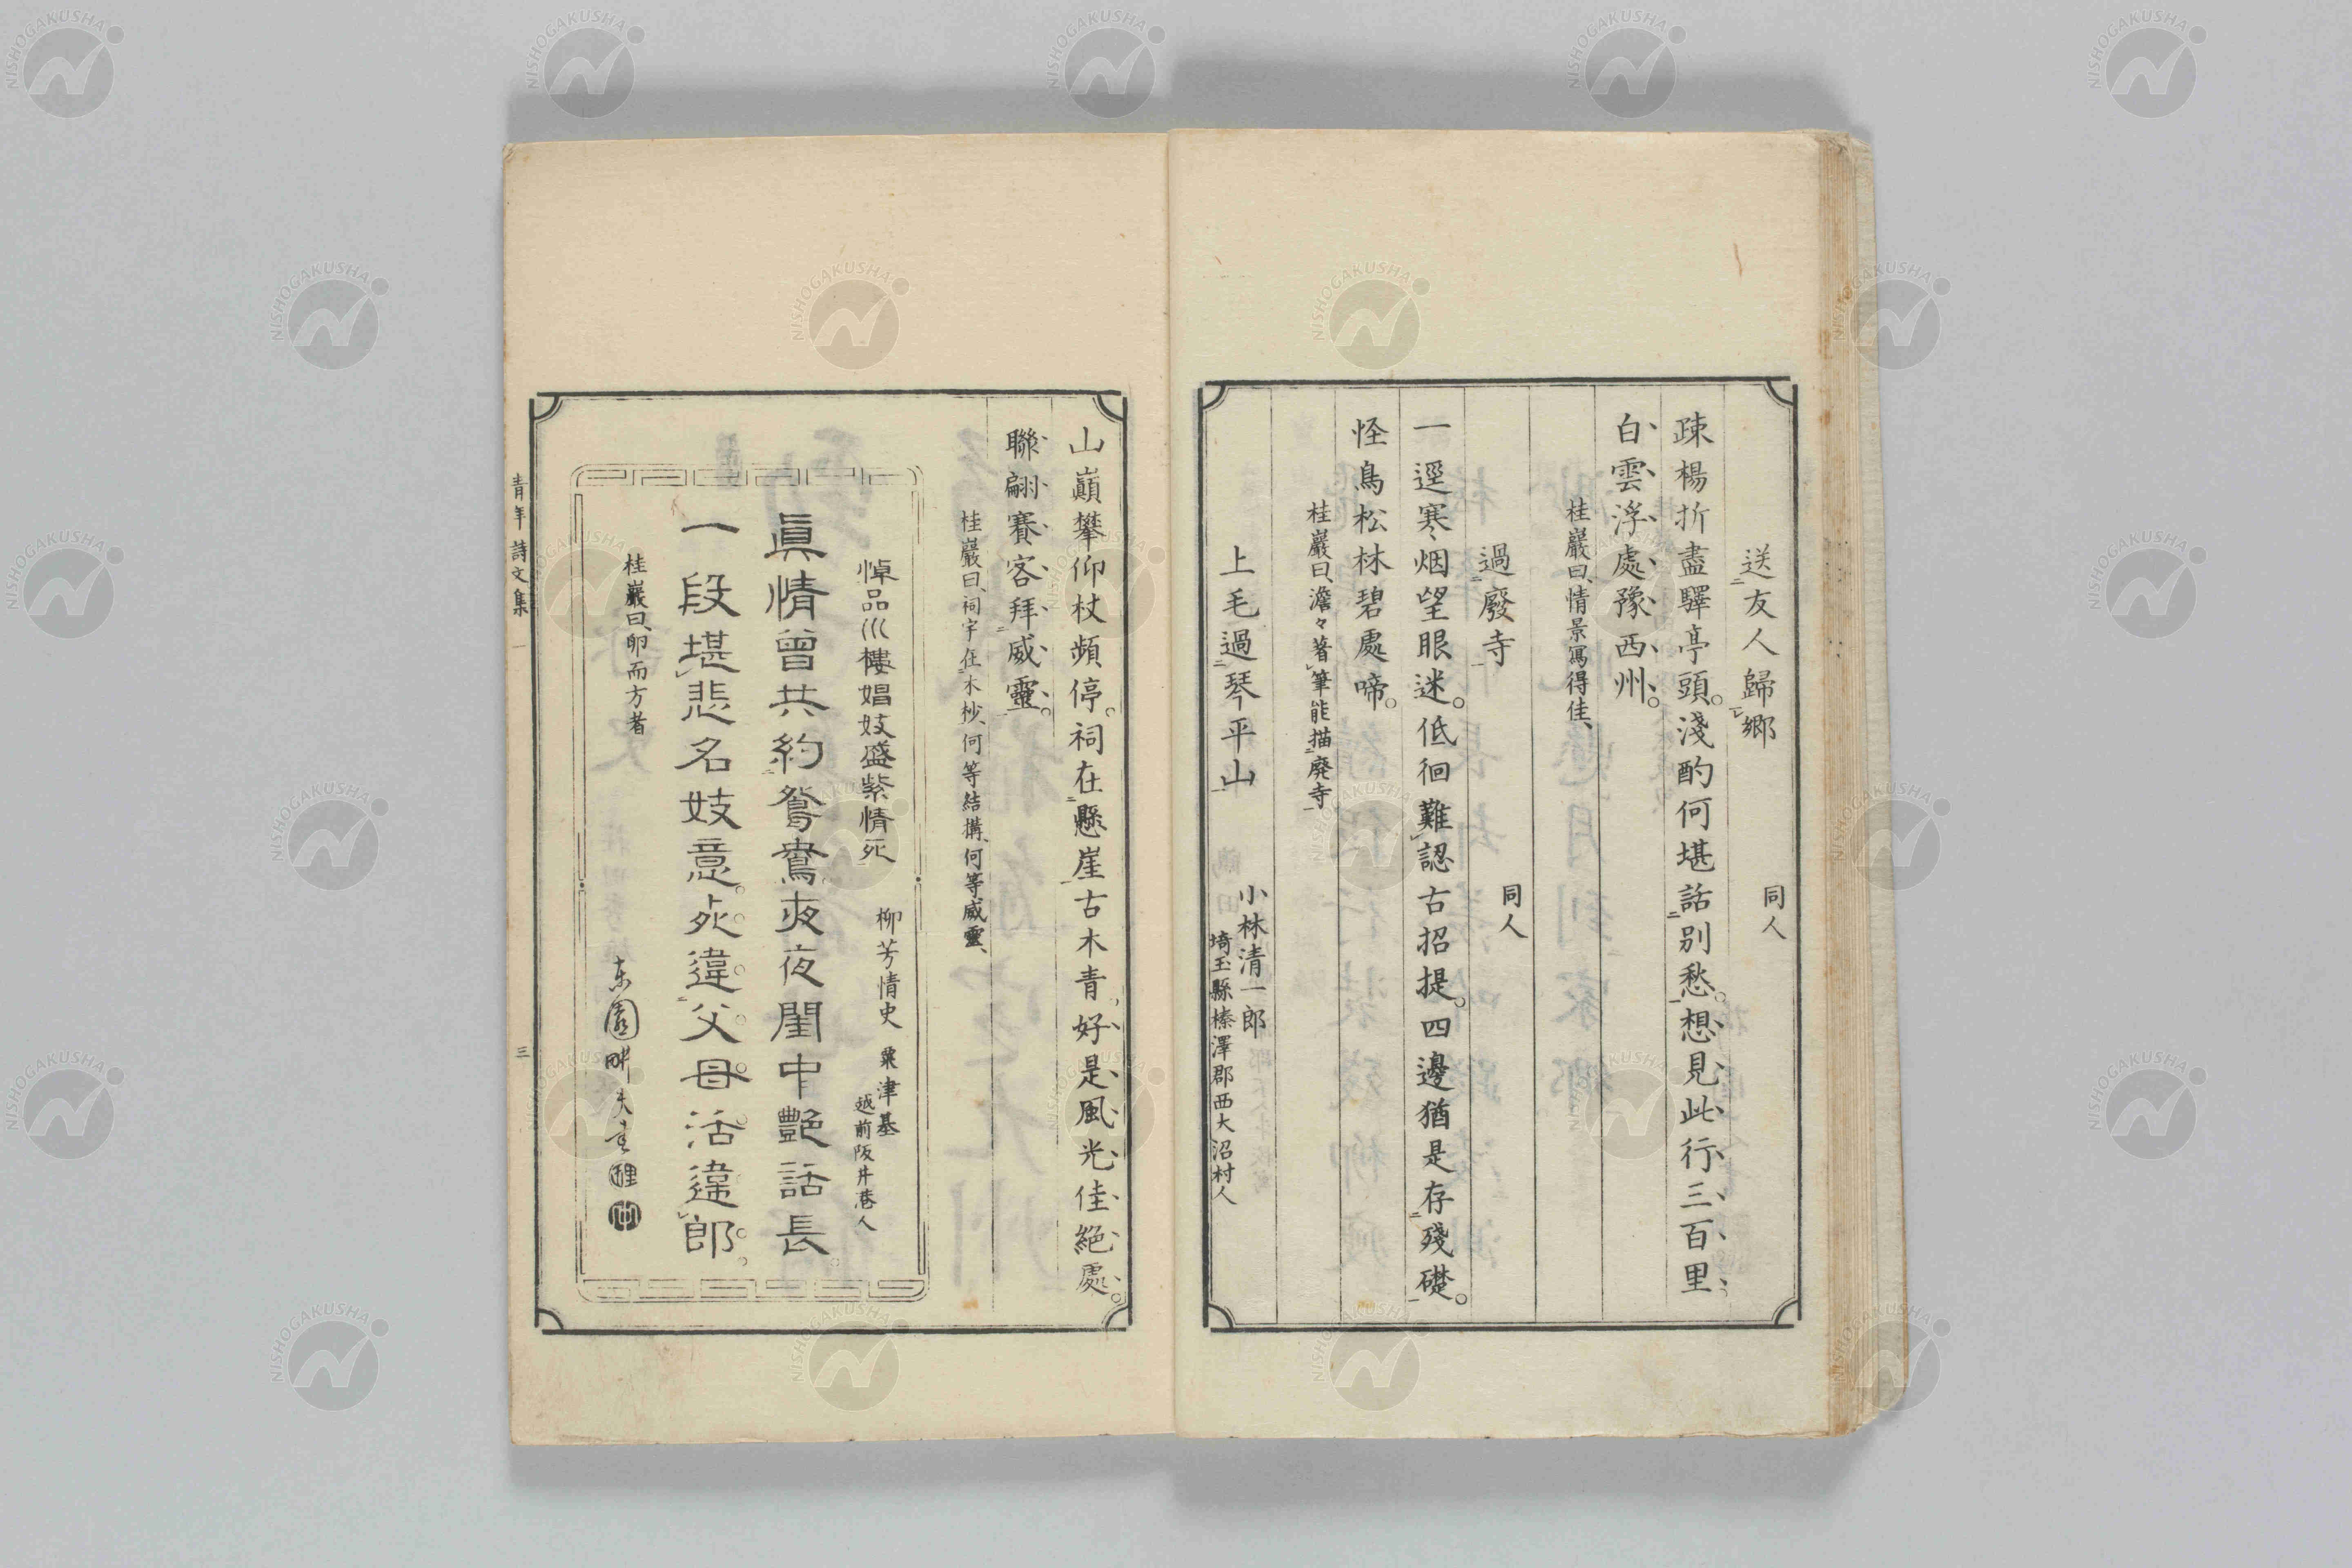 送友人歸鄉 同人
疎楊折盡驛亭頭。淺酌何堪話別愁。想見此行三百里
白雲浮處豫西州。
桂巖曰、情景寫得佳、
過廢寺 同人
一逕寒烟望眼迷。低徊難認古招提。四邊猶是存殘礎。
怪鳥松林碧處啼。
桂巖曰、澹々著筆能描廢寺
上毛過琴平山 小林清一郎
埼玉縣榛澤郡西大沼村人
山巓攀仰杖頻停。祠在懸崖古木青。好是風光佳絕處。
聯翩賽客拜威靈。
桂巖曰、祠宇在木杪、何等結構、何等威靈、
悼品川樓娼妓盛紫情死 柳芳情史 粟津基
越前阪井港人
眞情曾共約鴛鴦夜夜閨中艷話長
一段堪悲名妓意。死違父母活違郎。
桂巖曰、卵而方者
青年詩文集 一 三